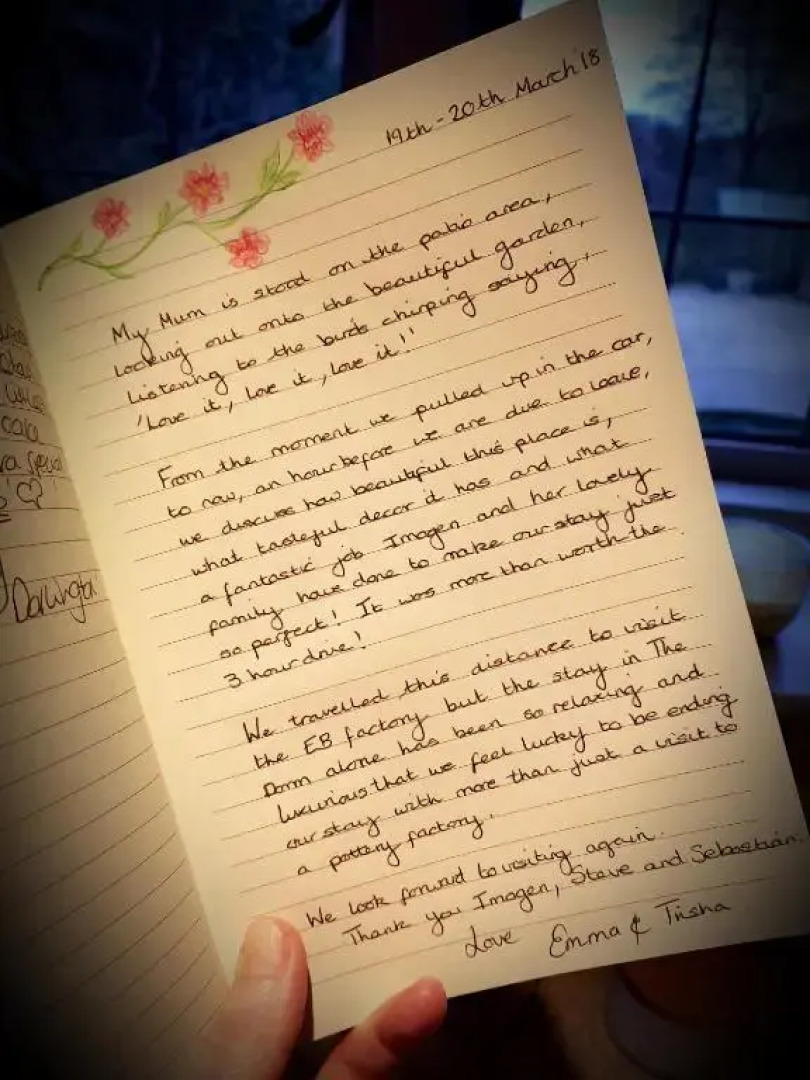 19th - 20th March '18
My Mum is stood on the patio area,
looking out onto the beautiful garden,
listening to the birds chirping saying,
'Love it, love it, love it!'
From the moment we pulled up in the car,
to now, an hour before we are due to leave,
we discuss how beautiful this place is,
what tasteful decor it has and what
a fantastic job Imogen and her lovely
family have done to make our stay just
so perfect! It was more than worth the
3 hour drive!
We travelled this distance to visit
the EB factory but the stay in The
Dorm alone has been so relaxing and
luxurious that we feel lucky to be ending
our stay with more than just a visit to
a pottery factory.
We look forward to visiting again.
Thank you Imogen, Steve and Sebastian.
Love Emma & Trisha